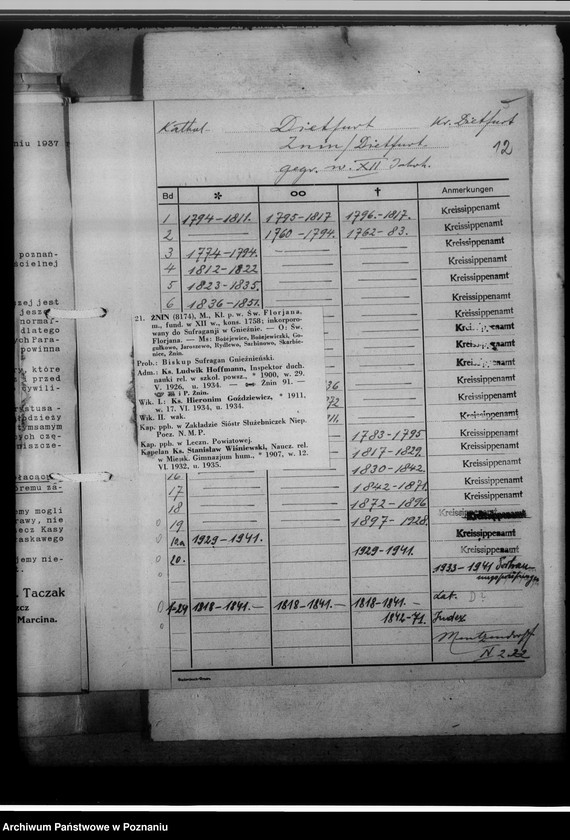 niu 1937
poznań-
ścielnej
szej jest
jesz
normal-
dlatego
ch Para-
powinna
y, które
przed
ywili-
ystusa -
łodzieży
tymsamym
ych czę-
niszcze-
płacąc
óremu za-
emy mogli
rawy, nie
zecz Kasy
raskawego
jemy nie-
t.
. Taczak
szcz
Marcina.
Kathol. Dietfurt Kr. Dietfurt 5
Znin/Dietfurt. 12
gegr. w. XII Jahrh.
Bd * oo † Anmerkungen
1 1794-1811. 1795-1817 1796.-1817. Kreissippenamt
2 1760-1794. 1762-83. Kreissippenamt
3 1774-1794. Kreissippenamt
4 1812-1822 Kreissippenamt
5 1823-1835. Kreissippenamt
6 1836-1851. Kreissippenamt
21. ŻNIN (8174), M., Kl. p. w. Św. Florjana.
m., fund. w XII w., kons. 1758; inkorporo-
wany do Sufraganji w Gnieźnie. — O: Św.
Florjana. — Ms: Bożejewice, Bożejewiczki, Go-
gółkowo, Jaroszewo, Rydlewo, Sarbinowo, Skarbie-
nice, Żnin.
Prob.: Biskup Sufragan Gnieźnieński.
Adm.: Ks. Ludwik Hoffmann, Inspektor duch.
nauki rel. w szkol. powsz., * 1900, w. 29.
V. 1926, u. 1934. — Żnin 91. —
i P. Żnin.
Wik. I.: Ks. Hieronim Goździewicz, * 1911,
w. 17. VI. 1934, u. 1934.
Wik. II. wak.
Kap. ppb. w Zakładzie Sióstr Służebniczek Niep.
Pocz. N. M. P.
Kap. ppb. w Leczn. Powiatowej.
Kapelan Ks. Stanisław Wiśniewski, Naucz. rel.
w Miejsk. Gimnazjum hum., * 1907, w. 12.
VI. 1932, u. 1935.
Kreissippenamt
Kreissippenamt
Kreissippenamt
36 Kreissippenamt
72 Kreissippenamt
11. Kreissippenamt
1783-1795 Kreissippenamt
1817-1829 Kreissippenamt
16 1830-1842. Kreissippenamt
17 1842-1871. Kreissippenamt
18 1872-1896 Kreissippenamt
19 1897-1928. Kreissippenamt
19a 1929-1941. Kreissippenamt
20. 1929-1941. Kreissippenamt
1933-1941
1-24 1818-1841.- 1818-1841.- 1818-1841.- Zak.
1842-71. Index
N 2.22
Archiwum Państwowe w Poznaniu